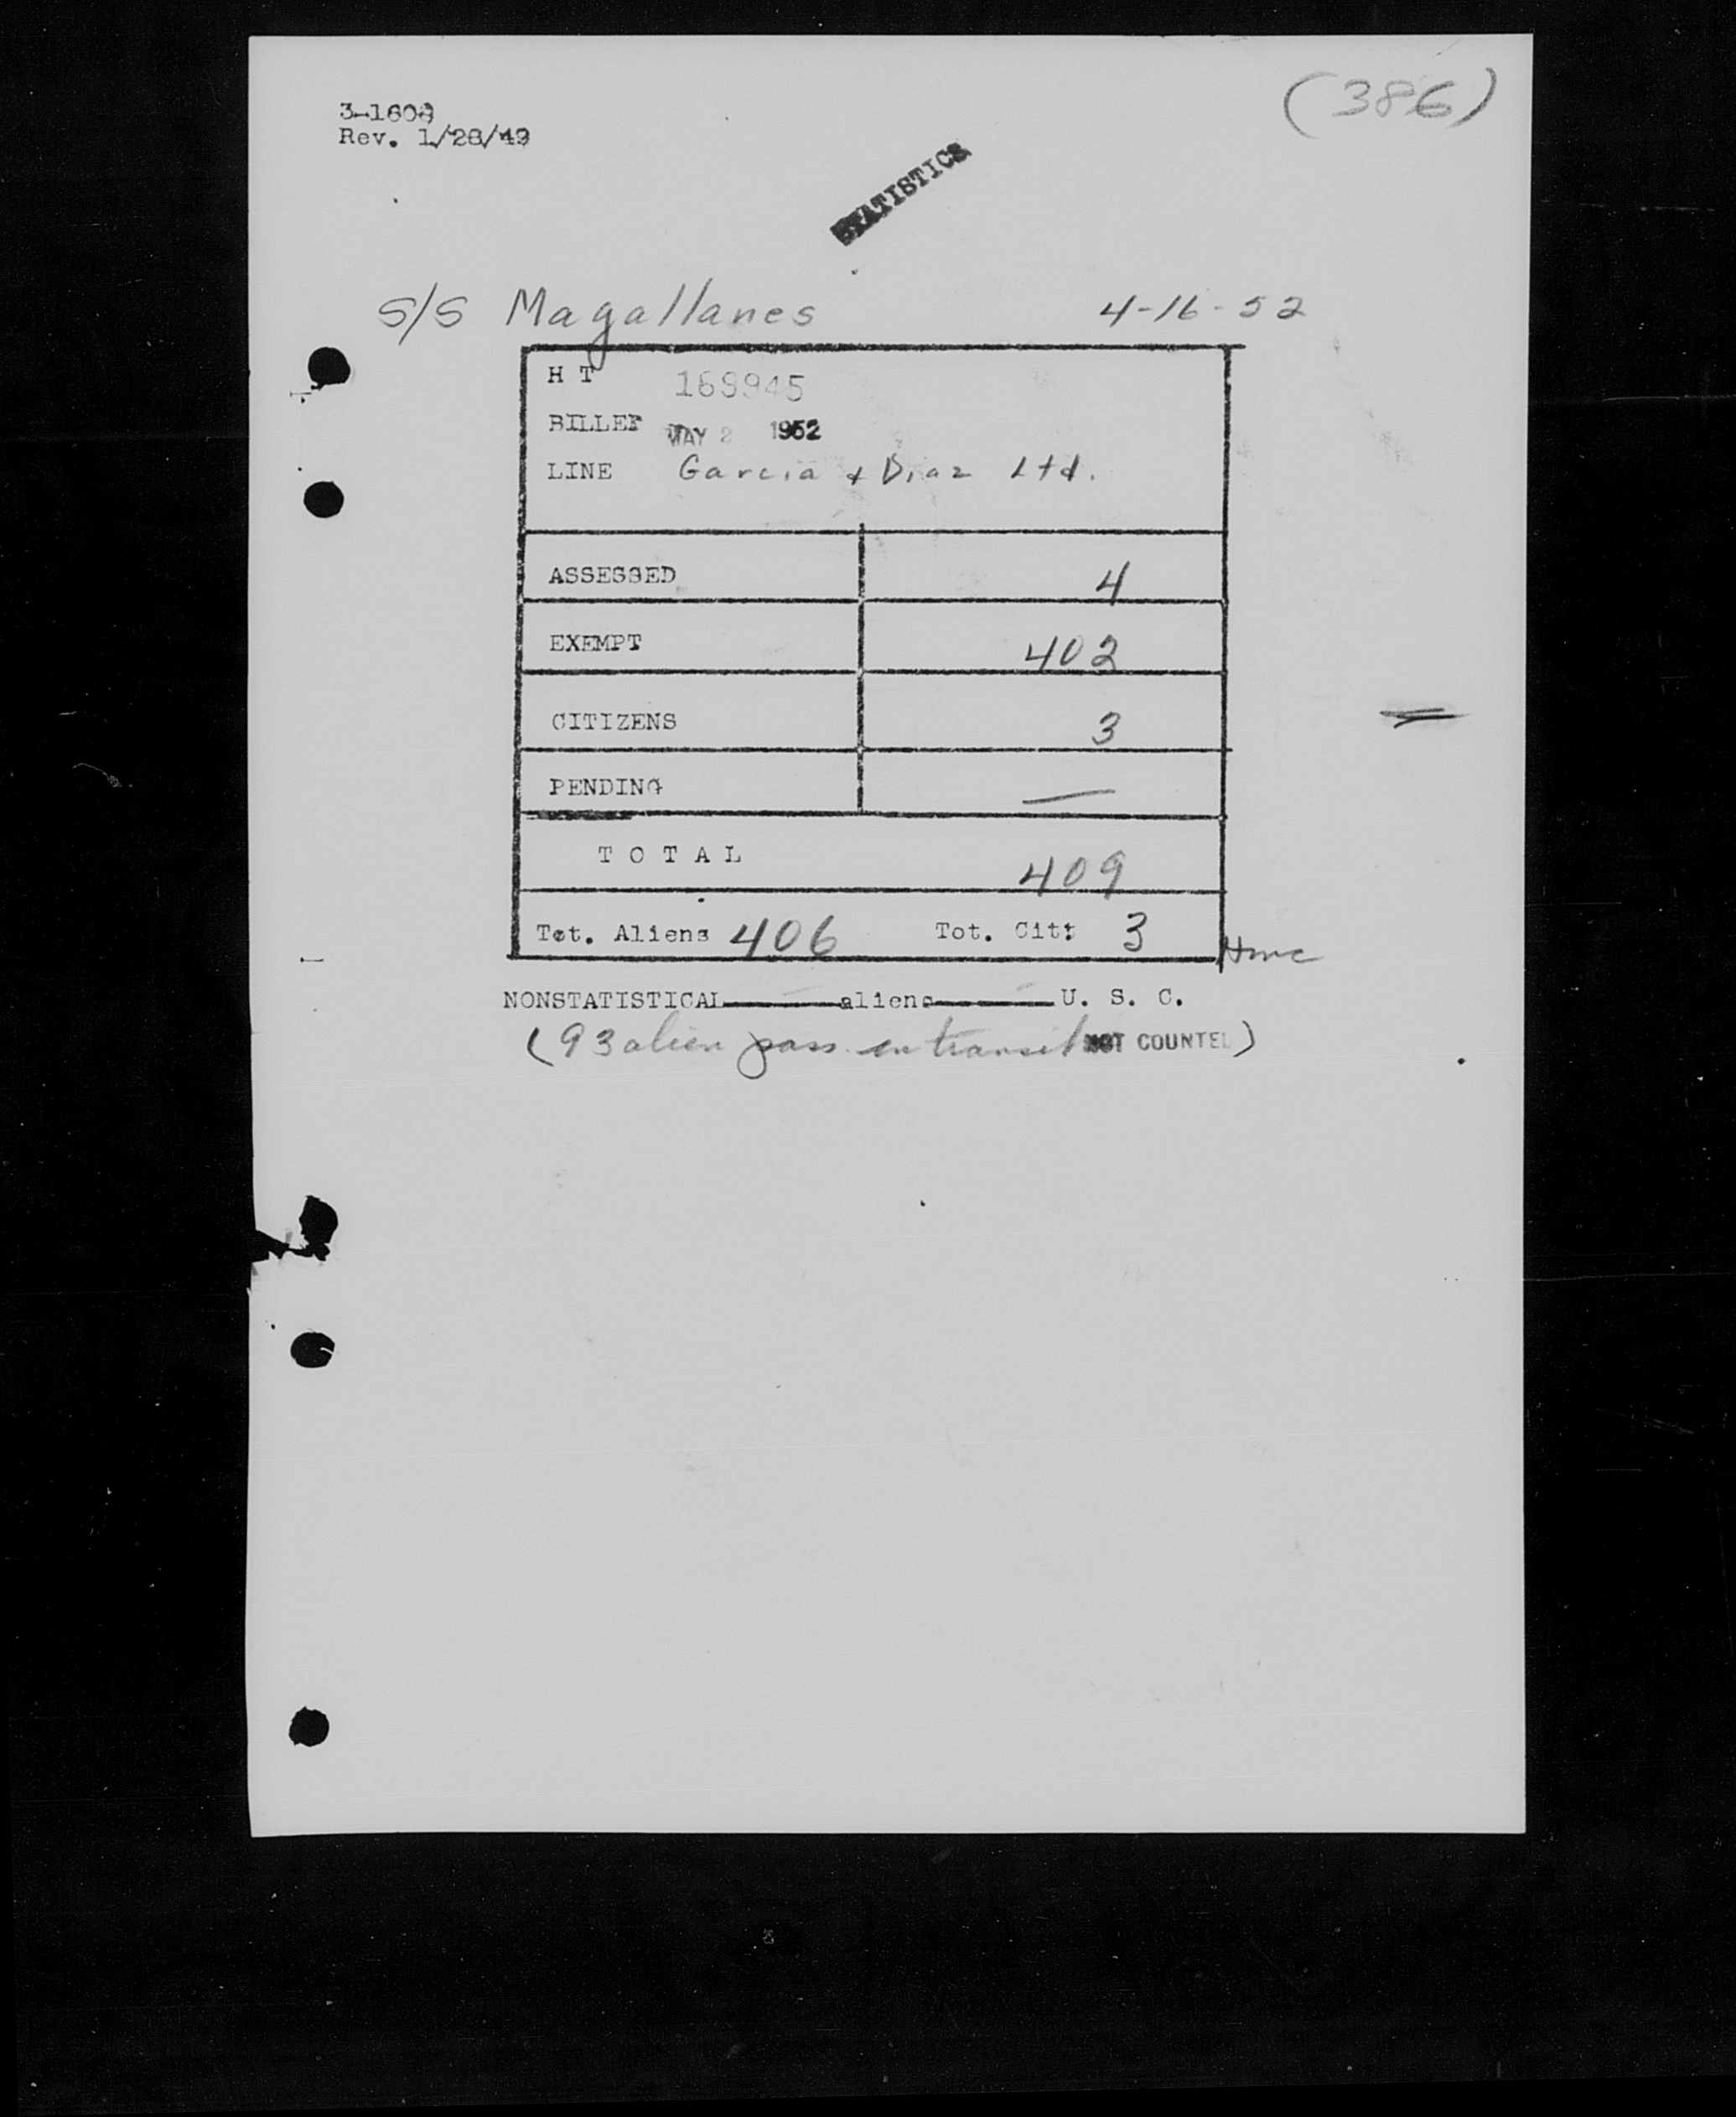 (386)
3-1609
Rev. 1/28/49
STATISTICS
S/S Magallanes 4-16-52
H T 169945
BILLED MAY 2 1952
LINE Garcia & Diaz Ltd.
ASSESSED 4
EXEMPT 402
CITIZENS 3
PENDING —
T O T A L 409
Tot. Aliens 406 Tot. Cit: 3
NONSTATISTICAL aliens U. S. C.
(93 alien pass. in transit NOT COUNTED)